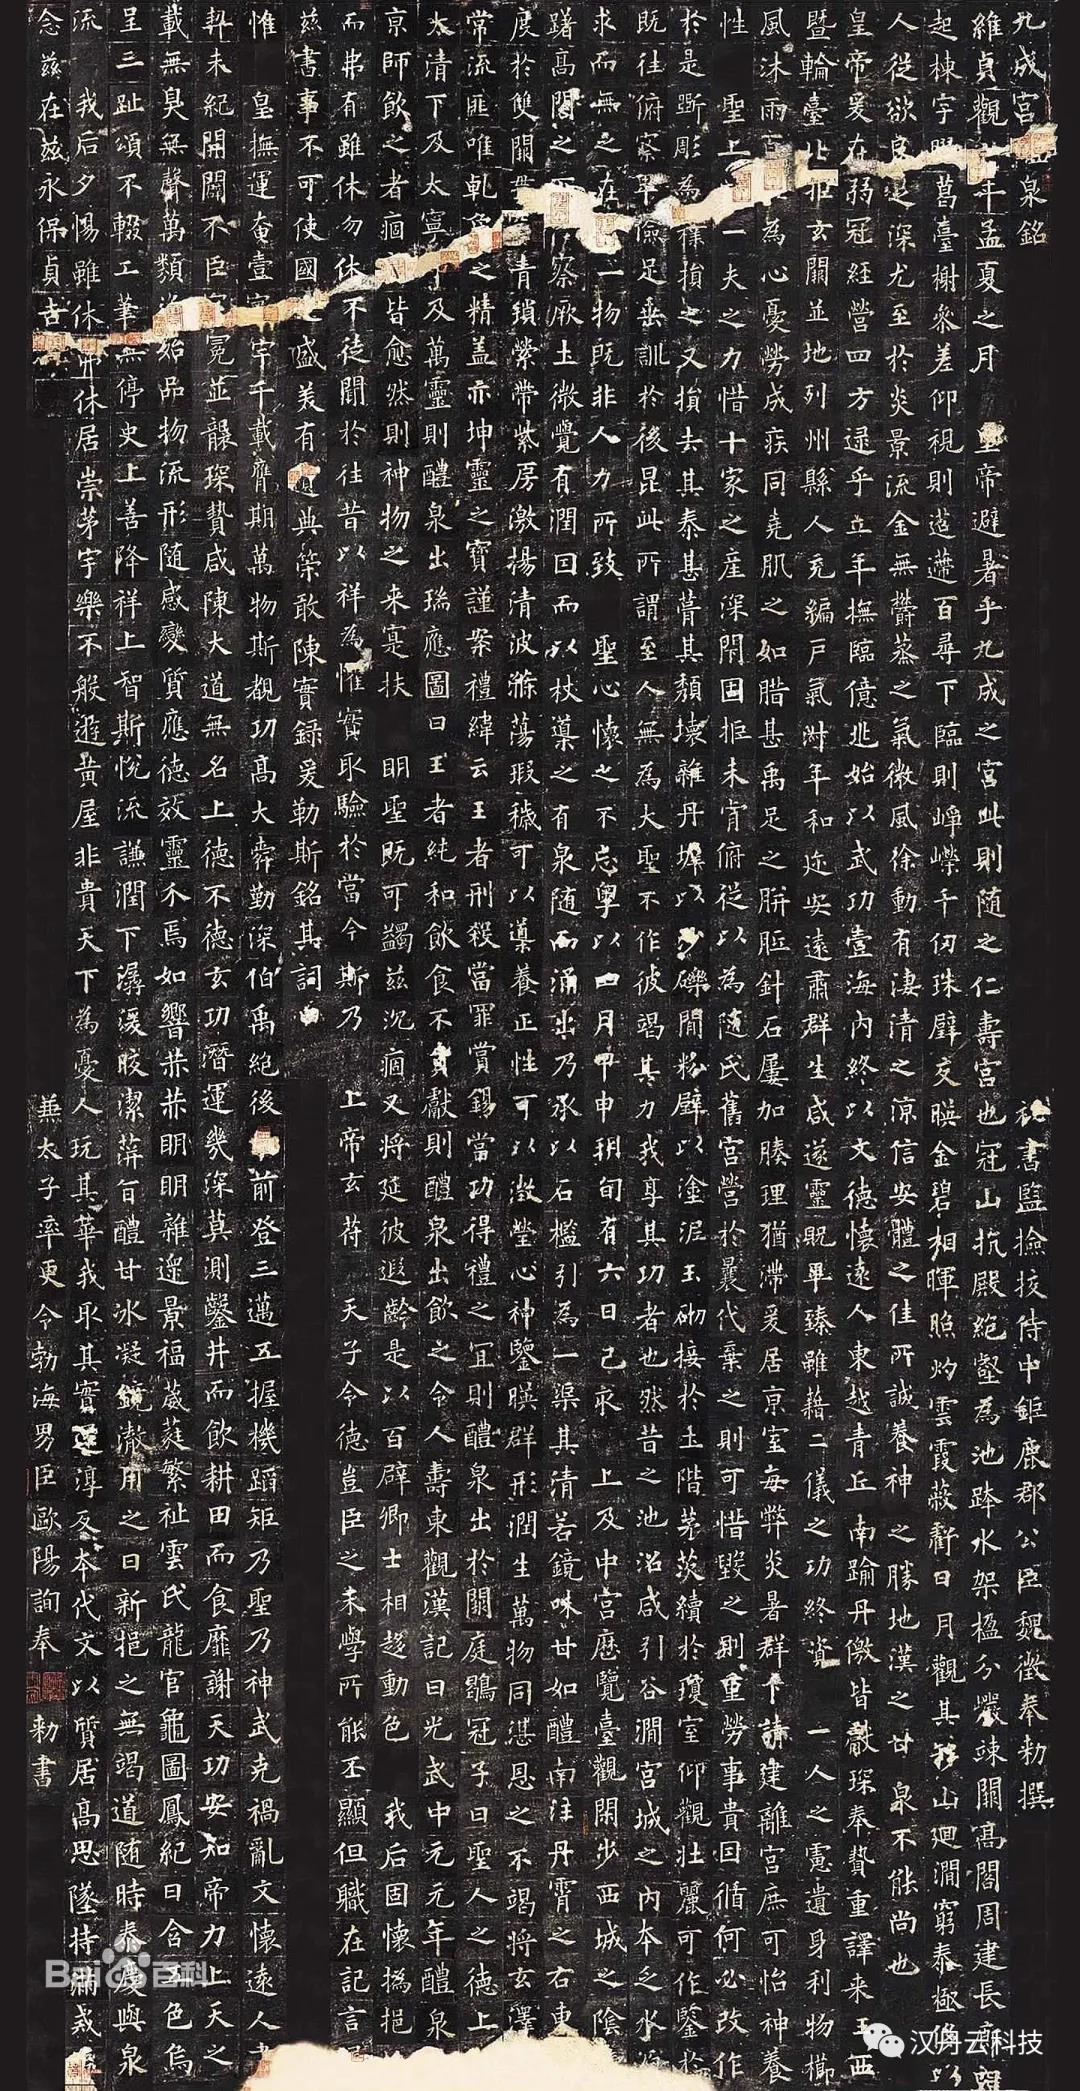 九成宮醴泉銘 秘書監撿挍侍中鉅鹿郡公臣魏徵奉勑撰
維貞觀年孟夏之月 皇帝避暑乎九成之宮此則随之仁壽宮也冠山抗殿絕壑為池跨水架楹分巖竦闕高閣周建長廊
起棟宇膠葛臺榭參差仰視則迢遰百尋下臨則崢嶸千仞珠璧交暎金碧相暉照灼雲霞蔽虧日月觀其移山迴澗窮泰極侈以
人從欲良足深尤至於炎景流金無欝蒸之氣微風徐動有凄清之涼信安體之佳所誠養神之勝地漢之甘泉不能尚也
皇帝爰在弱冠經營四方逮乎立年撫臨億兆始以武功壹海內終以文德懷遠人東越青丘南踰丹徼皆獻琛奉贄重譯来王西
暨輪臺北拒玄闕並地列州縣人充編戶氣淑年和迩安遠肅群生咸遂靈貺畢臻雖藉二儀之功終資 一人之慮遺身利物櫛
風沐雨百為心憂勞成疾同堯肌之如腊甚禹足之胼胝針石屢加腠理猶滯爰居京室每弊炎暑群下請建離宮庶可怡神養
性 聖上一夫之力惜十家之産深閉固拒未肯俯從以為随氏舊宮營於曩代棄之則可惜毀之則重勞事貴因循何必改作
於是斲彫為樸損之又損去其泰甚葺其頹壞雜丹墀以沙礫間粉壁以塗泥玉砌接於土階茅茨續於瓊室仰觀壯麗可作鑒於
既往俯察卑儉足垂訓於後昆此所謂至人無為大聖不作彼竭其力我享其功者也然昔之池沼咸引谷澗宮城之內本乏水源
求而無之在一物既非人力所致 聖心懷之不忘粤以四月甲申朔旬有六日己亥 上及中宮歷覽臺觀閑步西城之陰
躇高閣之下察厥土微覺有潤因而以杖導之有泉随而涌出乃承以石檻引為一渠其清若鏡味甘如醴南注丹霄之右東
度於雙闕青瑣縈帶紫房激揚清波滌蕩瑕穢可以導養正性可以澂瑩心神鑒暎群形潤生萬物同湛恩之不竭將玄澤
常流匪唯乾象之精蓋亦坤靈之寶謹案禮緯云王者刑殺當罪賞錫當功得禮之宜則醴泉出於闕庭鶡冠子曰聖人之德上
太清下及太寧中及萬靈則醴泉出瑞應圖曰王者純和飲食不貢獻則醴泉出飲之令人壽東觀漢記曰光武中元元年醴泉
京師飲之者痼皆愈然則神物之来寔扶 明聖既可蠲兹沉痼又將延彼遐齡是以百辟卿士相趨動色 我后固懷撝挹
而弗有雖休勿休不徒聞於往昔以祥為懼實取驗於當今斯乃 上帝玄符 天子令德豈臣之末學所能丕顯但職在記言
兹書事不可使國之盛美有遺典策敢陳實録爰勒斯銘其詞曰
惟 皇撫運奄壹寰宇千載膺期萬物斯覩功高大舜勤深伯禹絕後前登三邁五握機蹈矩乃聖乃神武克禍亂文懷遠人書
契未紀開闢不臣冠冕並襲琛贄咸陳大道無名上德不德玄功潛運幾深莫測鑿井而飲耕田而食靡謝天功安知帝力上天之
載無臭無聲萬類資始品物流形随感變質應德效靈介焉如響赫赫明明雜遝景福葳蕤繁祉雲氏龍官龜圖鳳紀日含五色烏
呈三趾頌不輟工筆無停史上善降祥上智斯悅流謙潤下潺湲皎潔蓱旨醴甘冰凝鏡澈用之日新挹之無竭道随時泰慶與泉
流 我后夕惕雖休弗休居崇茅宇樂不般遊黄屋非貴天下為憂人玩其華我取其實還淳反本代文以質居高思墜持滿戒溢
念兹在兹永保貞吉 兼太子率更令勃海男臣歐陽詢奉 勑書
Baidu百科
汉丹云科技